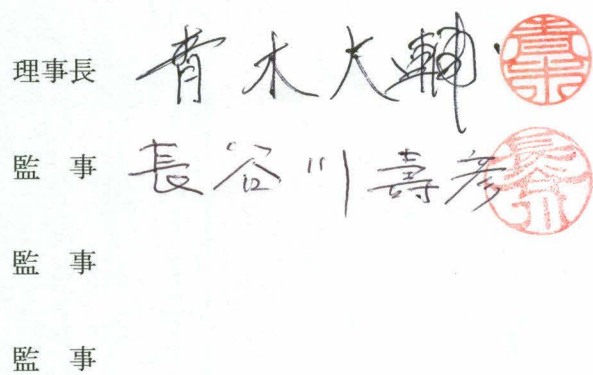 理事長 青木大輔 青木
監事 長谷川壽彦 長谷川
監事
監事